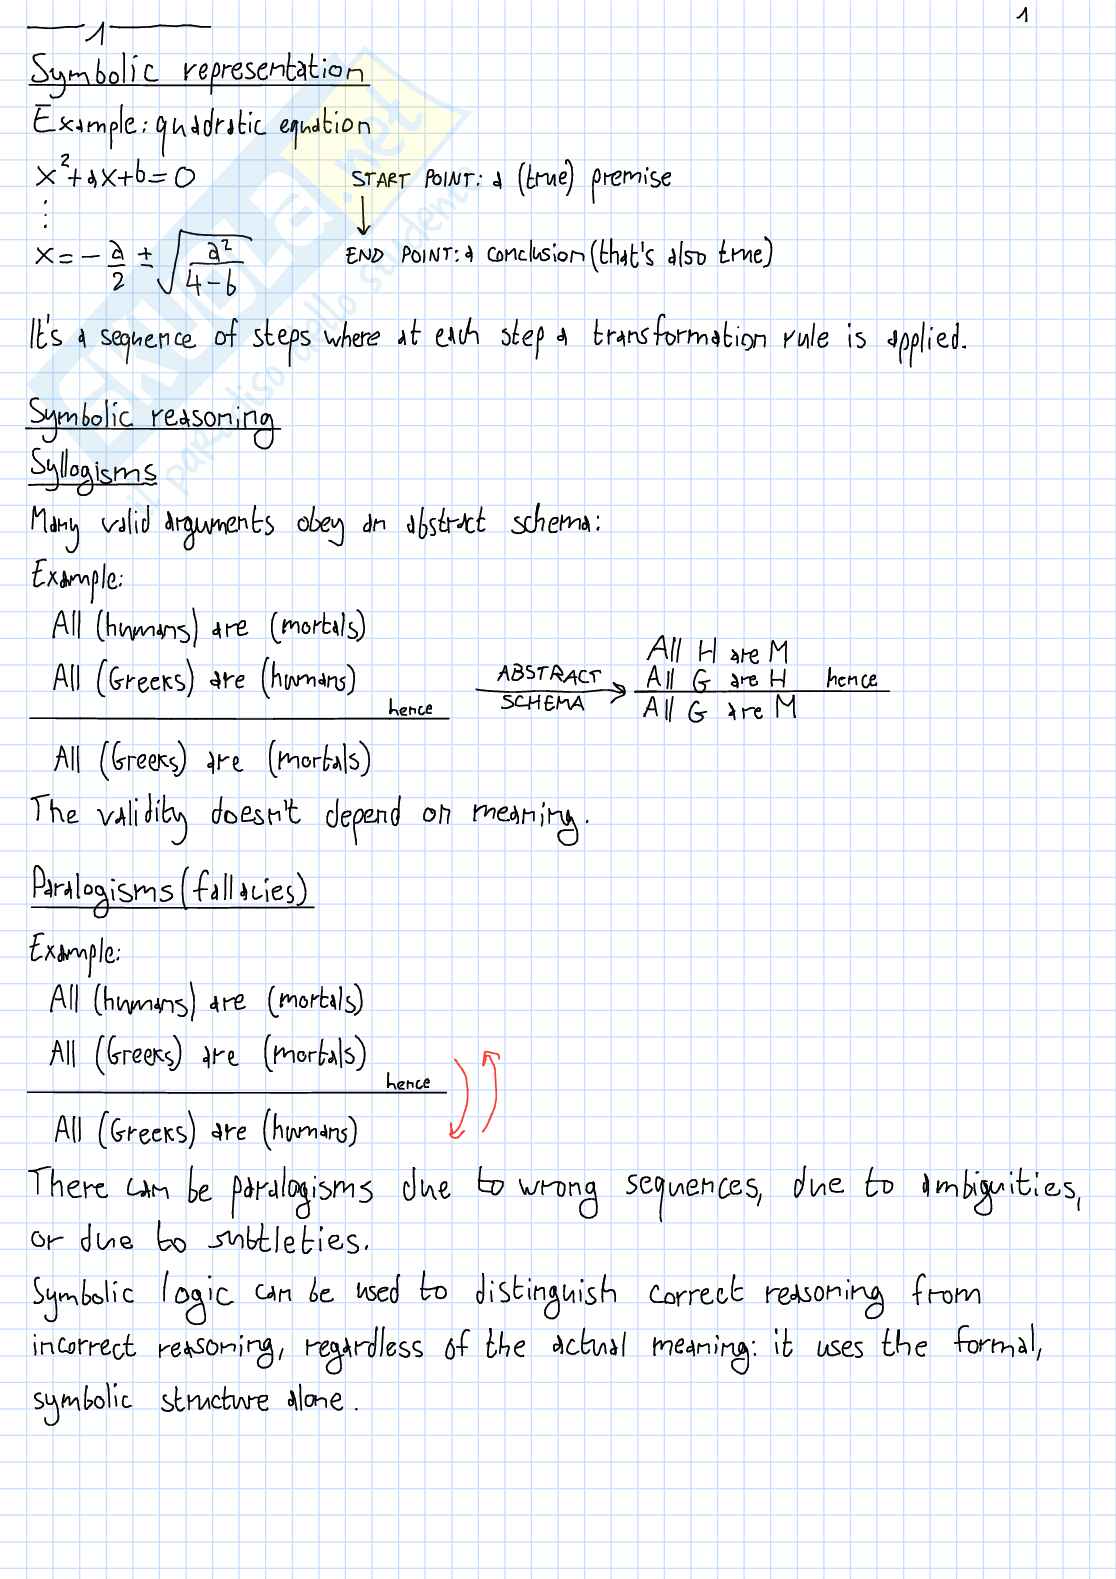 1
1
Symbolic representation
Example: quadratic equation
x²+ax+b=0
START POINT: a (true) premise
⋮
↓
x = - a/2 ± √(a²/(4-b))
END POINT: a conclusion (that's also true)
It's a sequence of steps where at each step a transformation rule is applied.
Symbolic reasoning
Syllogisms
Many valid arguments obey an abstract schema:
Example:
All (humans) are (mortals)
All (Greeks) are (humans)
hence
All (Greeks) are (mortals)
ABSTRACT
SCHEMA
All H are M
All G are H hence
All G are M
The validity doesn't depend on meaning.
Paralogisms (fallacies)
Example:
All (humans) are (mortals)
All (Greeks) are (mortals)
hence
All (Greeks) are (humans)
There can be paralogisms due to wrong sequences, due to ambiguities,
or due to subtleties.
Symbolic logic can be used to distinguish correct reasoning from
incorrect reasoning, regardless of the actual meaning: it uses the formal,
symbolic structure alone.
SKUOLA.net
il paradiso dello studente